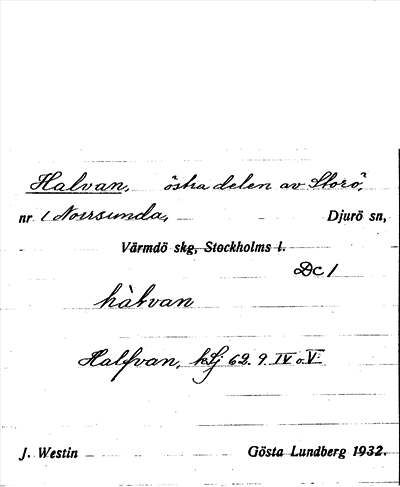 Halvan, östra delen av Storö,
nr 1 Norrsunda, Djurö sn,
Värmdö skg, Stockholms l.
Dc 1
hàlvan
Halfvan, klj 62. 9. IV o. V.
J. Westin Gösta Lundberg 1932.